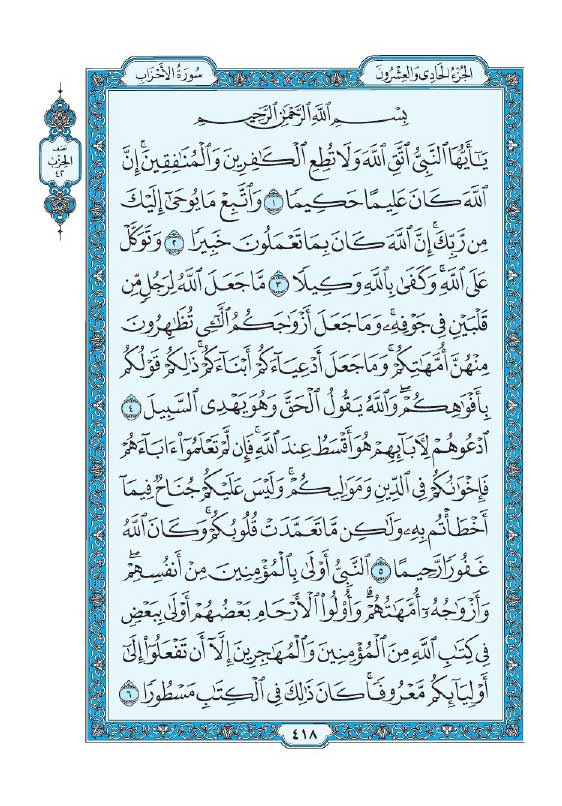 الجُزْءُ الحَادِي وَالعِشْرُونَ
سُورَةُ الأَحْزَابِ
نصف
الحِزْب
٤٢
بِسْمِ ٱللَّهِ ٱلرَّحْمَٰنِ ٱلرَّحِيمِ
يَٰٓأَيُّهَا ٱلنَّبِيُّ ٱتَّقِ ٱللَّهَ وَلَا تُطِعِ ٱلْكَٰفِرِينَ وَٱلْمُنَٰفِقِينَۚ إِنَّ
ٱللَّهَ كَانَ عَلِيمًا حَكِيمًا ١ وَٱتَّبِعْ مَا يُوحَىٰٓ إِلَيْكَ
مِن رَّبِّكَۚ إِنَّ ٱللَّهَ كَانَ بِمَا تَعْمَلُونَ خَبِيرًا ٢ وَتَوَكَّلْ
عَلَى ٱللَّهِۚ وَكَفَىٰ بِٱللَّهِ وَكِيلًا ٣ مَّا جَعَلَ ٱللَّهُ لِرَجُلٍ مِّن
قَلْبَيْنِ فِي جَوْفِهِۦۚ وَمَا جَعَلَ أَزْوَٰجَكُمُ ٱلَّٰٓـِٔي تُظَٰهِرُونَ
مِنْهُنَّ أُمَّهَٰتِكُمْۚ وَمَا جَعَلَ أَدْعِيَآءَكُمْ أَبْنَآءَكُمْۚ ذَٰلِكُمْ قَوْلُكُم
بِأَفْوَٰهِكُمْۖ وَٱللَّهُ يَقُولُ ٱلْحَقَّ وَهُوَ يَهْدِي ٱلسَّبِيلَ ٤
ٱدْعُوهُمْ لِأٓبَآئِهِمْ هُوَ أَقْسَطُ عِندَ ٱللَّهِۚ فَإِن لَّمْ تَعْلَمُوٓا۟ ءَابَآءَهُمْ
فَإِخْوَٰنُكُمْ فِي ٱلدِّينِ وَمَوَٰلِيكُمْۚ وَلَيْسَ عَلَيْكُمْ جُنَاحٌ فِيمَآ
أَخْطَأْتُم بِهِۦ وَلَٰكِن مَّا تَعَمَّدَتْ قُلُوبُكُمْۚ وَكَانَ ٱللَّهُ
غَفُورًا رَّحِيمًا ٥ ٱلنَّبِيُّ أَوْلَىٰ بِٱلْمُؤْمِنِينَ مِنْ أَنفُسِهِمْۖ
وَأَزْوَٰجُهُۥٓ أُمَّهَٰتُهُمْۗ وَأُو۟لُوا۟ ٱلْأَرْحَامِ بَعْضُهُمْ أَوْلَىٰ بِبَعْضٍ
فِي كِتَٰبِ ٱللَّهِ مِنَ ٱلْمُؤْمِنِينَ وَٱلْمُهَٰجِرِينَ إِلَّآ أَن تَفْعَلُوٓا۟ إِلَىٰٓ
أَوْلِيَآئِكُم مَّعْرُوفًاۚ كَانَ ذَٰلِكَ فِي ٱلْكِتَٰبِ مَسْطُورًا ٦
٤١٨